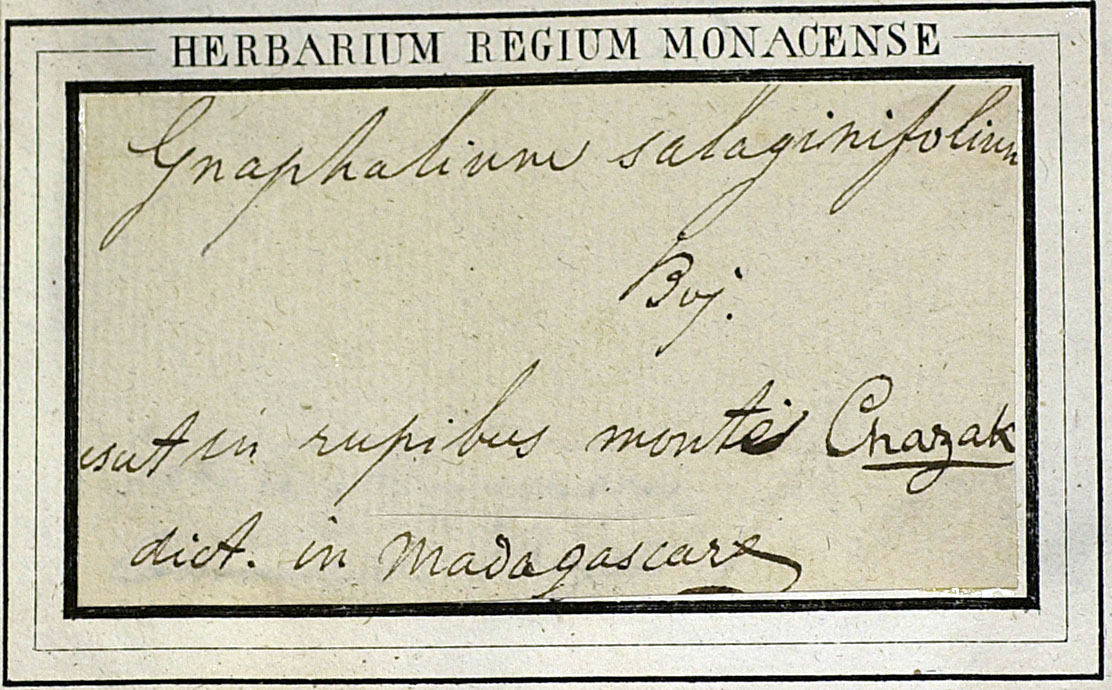 HERBARIUM REGIUM MONACENSE
Gnaphalium salaginifolium
Boj.
in rupibus montis Chazak
dict. in Madagascare